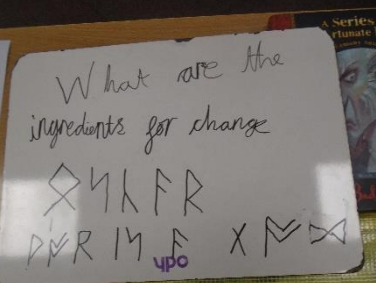 What are the
ingredients for change
ᛟᛋᚳᚫᚱ
ᚦᚩᚱ ᛁᛋ ᚫ ᚷᚩᛞ
ypo
A Series